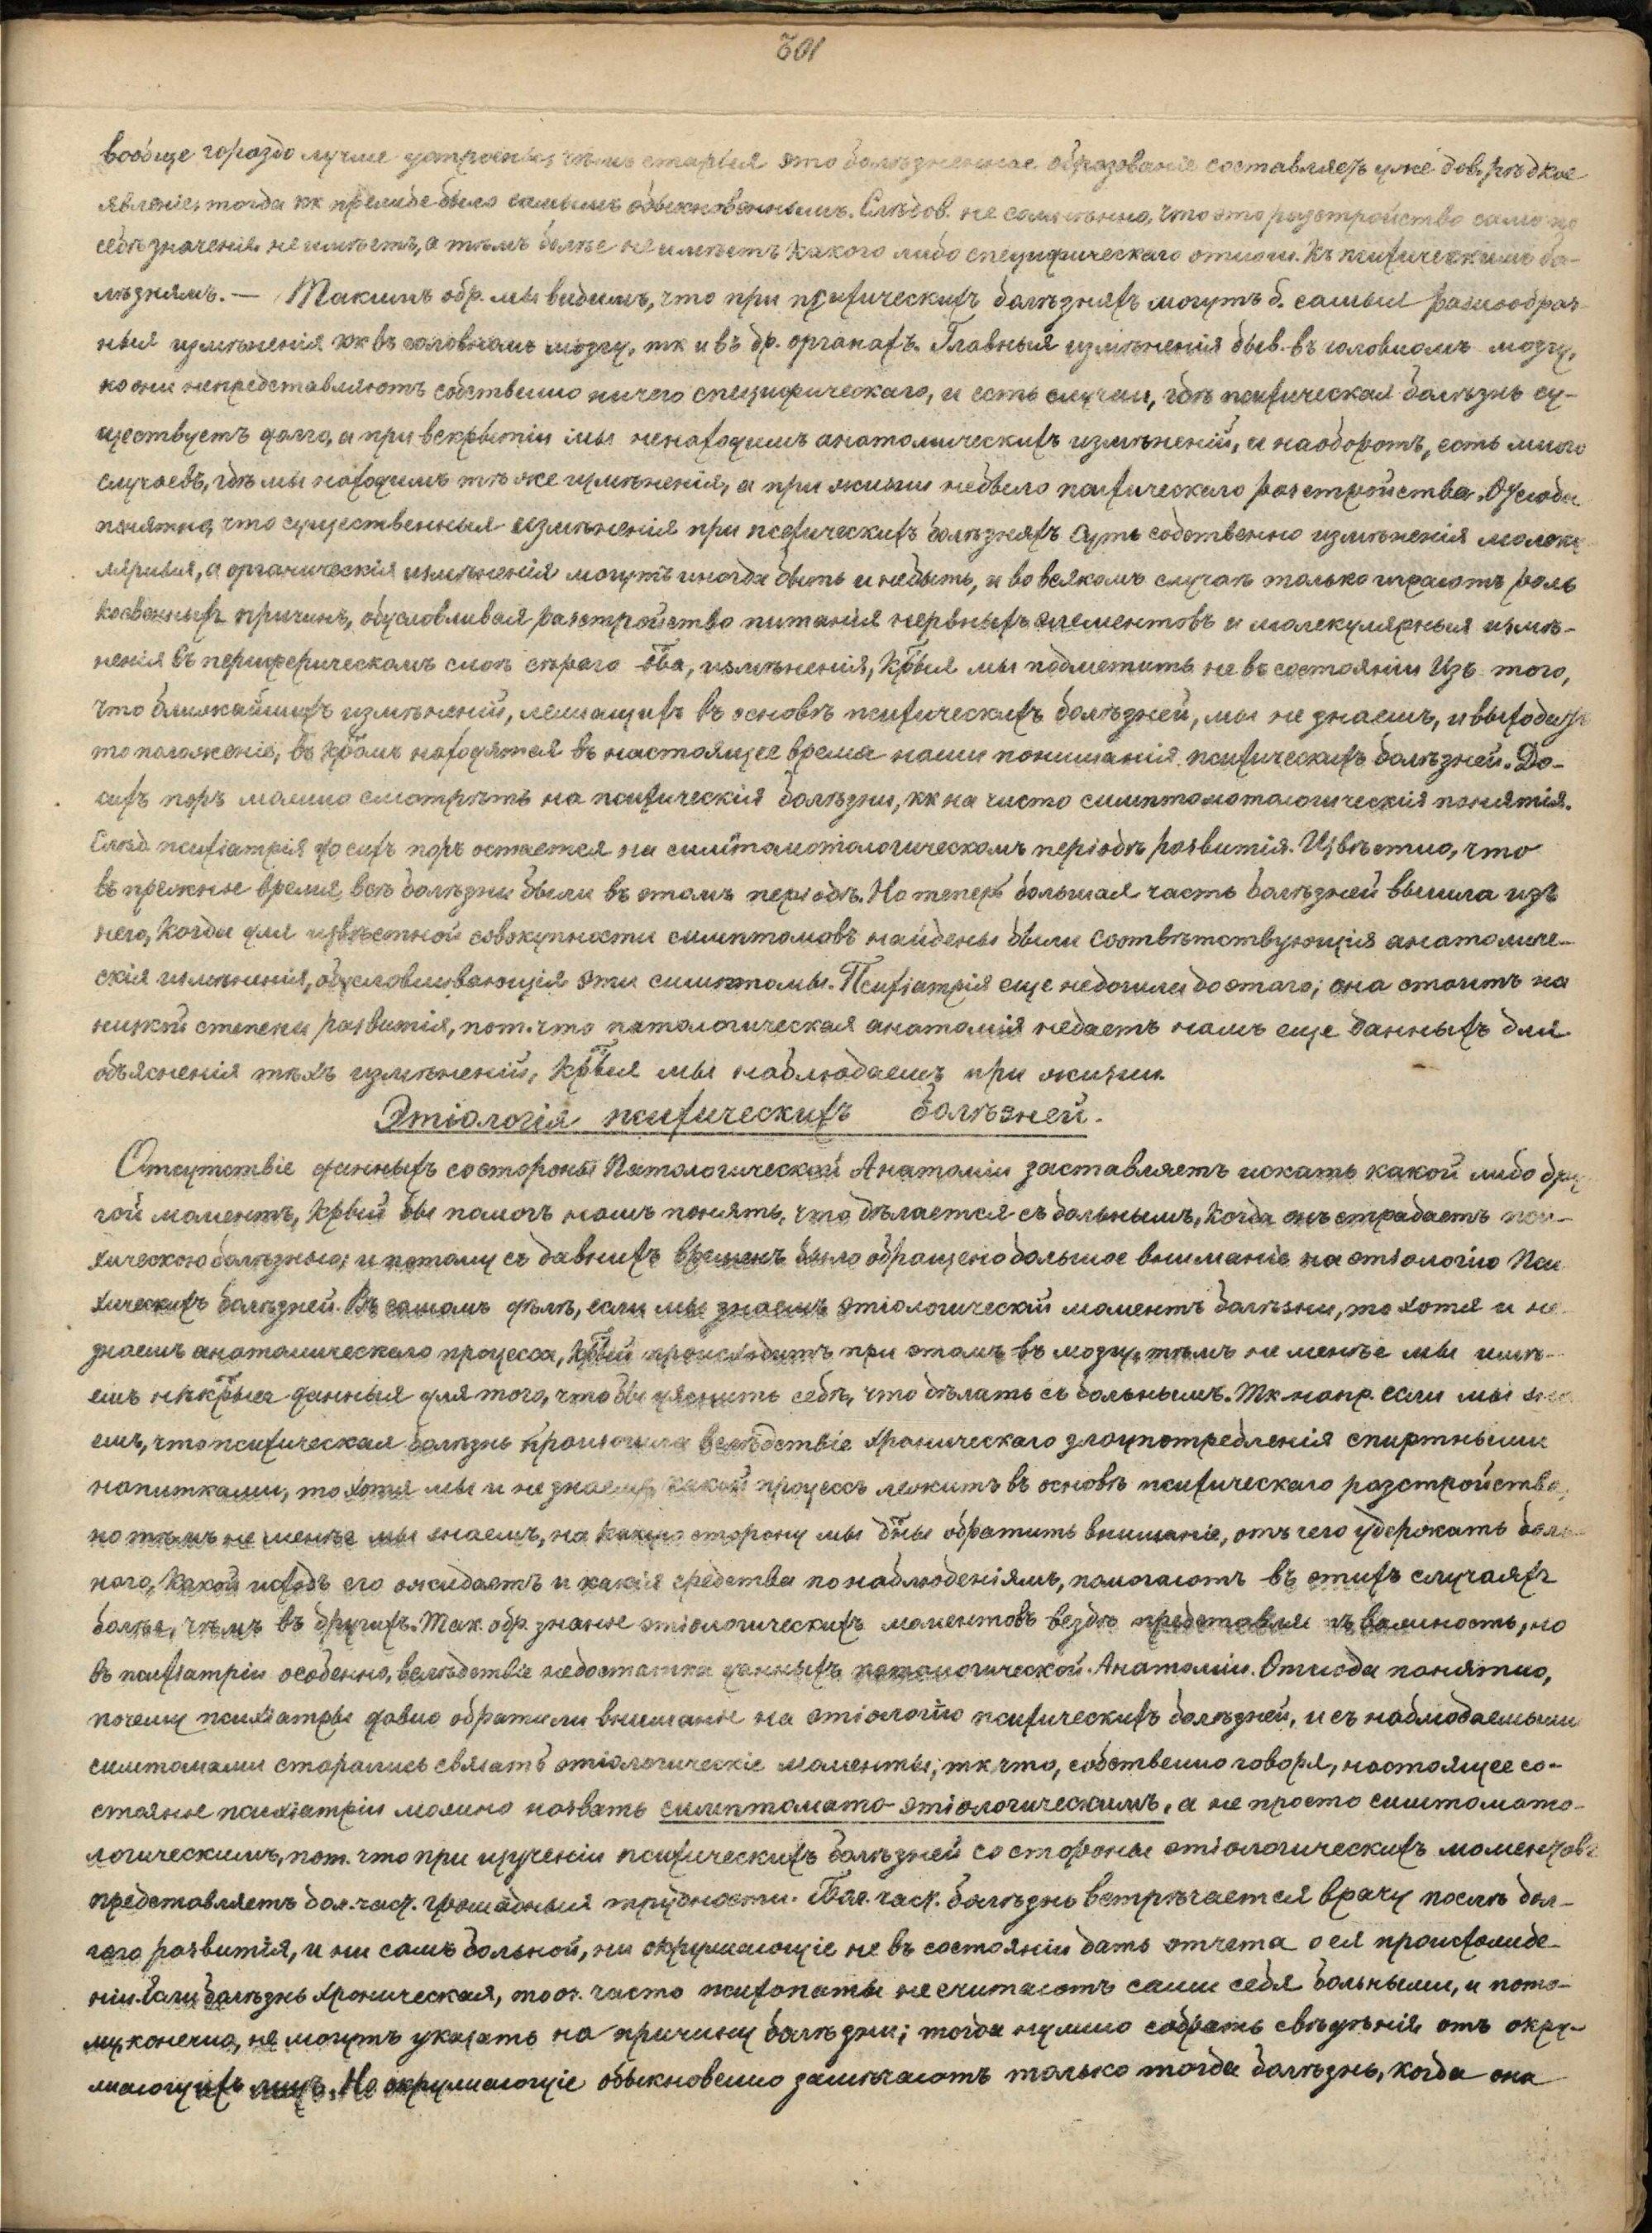 301
вообще гораздо лучше устроены, чѣмъ старыя это болѣзненное образованіе составляетъ уже дов. рѣдкое
явленіе, тогда кк прежде было самымъ обыкновеннымъ. Слѣдов. не сомнѣнно, что это разстройство само по
себѣ значенія не имѣетъ, а тѣмъ болѣе не имѣетъ какого либо специфическаго отнош. къ психическимъ бо-
лѣзнямъ. — Такимъ обр. мы видимъ, что при психическихъ болѣзняхъ могутъ б. самыя разнообраз-
ныя измѣненія кк въ головномъ мозгу, тк и въ др. органахъ. Главныя измѣненія быв. въ головномъ мозгу,
но они непредставляютъ собственно ничего специфическаго, и есть случаи, гдѣ психическая болѣзнь су-
ществуетъ долго, а при вскрытіи мы ненаходимъ анатомическихъ измѣненій, и наоборотъ, есть много
случаевъ, гдѣ мы находимъ тѣ же измѣненія, а при жизни небыло психическаго разстройства. Отсюда
понятно, что существенныя измѣненія при психическихъ болѣзняхъ суть собственно измѣненія молеку
лярныя, а органическія измѣненія могутъ иногда быть и небыть, и во всякомъ случаѣ только играютъ роль
косвенныхъ причинъ, обусловливая разстройство питанія нервныхъ элементовъ и молекулярныя измѣ-
ненія въ периферическомъ слоѣ сѣраго в-ва, измѣненія, крыя мы подмѣтить не въ состояніи Изъ того,
что ближайшихъ измѣненій, лежащихъ въ основѣ психическихъ болѣзней, мы не знаемъ, и выходитъ
то положеніе, въ кромъ находятся въ настоящее время наши пониманія психическихъ болѣзней. До-
сихъ поръ можно смотрѣть на психическія болѣзни, кк на чисто симптоматологическія понятія.
Слѣд. психіатрія до сихъ поръ остается на симптоматологическомъ періодѣ развитія. Извѣстно, что
въ прежнее время, всѣ болѣзни были въ этомъ періодѣ. Но теперь большая часть болѣзней вышла изъ
него, когда для извѣстной совокупности симптомовъ найдены были соотвѣтствующія анатомиче-
скія измѣненія, обусловливающія эти симптомы. Психіатрія еще недошла до этого; она стоитъ на
низкой степени развитія, пот. что патологическая анатомія недаетъ намъ еще данныхъ для
объясненія тѣхъ измѣненій, крыя мы наблюдаемъ при жизни.
Этіологія психическихъ болѣзней.
Отсутствіе данныхъ со стороны Патологической Анатоміи заставляетъ искать какой либо дру
гой моментъ, крый бы помогъ намъ понять, что дѣлается съ больнымъ, когда онъ страдаетъ пси-
хическою болѣзнью; и потому съ давнихъ временъ было обращено большое вниманіе на этіологію Пси
хическихъ болѣзней. Въ самомъ дѣлѣ, если мы знаемъ этіологическій моментъ болѣзни, то хотя и не
знаемъ анатомическаго процесса, крый происходитъ при этомъ въ мозгу, тѣмъ не менѣе мы имѣ-
емъ нѣкрыя данныя для того, чтобы уяснить себѣ, что дѣлать съ больнымъ. Тк напр. если мы зна
емъ, что психическая болѣзнь произошла вслѣдствіе хроническаго злоупотребленія спиртными
напитками, то хотя мы и не знаемъ, какой процессъ лежитъ въ основѣ психическаго разстройства,
но тѣмъ не менѣе мы знаемъ, на какую сторону мы дны обратить вниманіе, отъ чего удержать боль-
ного, какой исходъ его ожидаетъ и какія средства по наблюденіямъ, помогаютъ въ этихъ случаяхъ
болѣе, чѣмъ въ другихъ. Так. обр. знаніе этіологическихъ моментовъ вездѣ представляетъ важность, но
въ психіатріи особенно, вслѣдствіе недостатка данныхъ патологической Анатоміи. Отсюда понятно,
почему психіатры давно обратили вниманіе на этіологію психическихъ болѣзней, и съ наблюдаемыми
симтомами старались связать этіологическіе моменты; тк что, собственно говоря, настоящее со-
стояніе психіатріи можно назвать симптомато-этіологическимъ, а не просто симтомато-
логическимъ, пот. что при изученіи психическихъ болѣзней со стороны этіологическихъ моментовъ
представляетъ бол. част. громадныя трудности. Бол. част. болѣзнь встрѣчается врачу послѣ дол-
гаго развитія, и ни самъ больной, ни окружающіе не въ состояніи дать отчета о ея происхожде-
ніи. Если болѣзнь хроническая, то оч. часто психопаты не считаютъ сами себя больными, и пото-
му, конечно, не могутъ указать на причину болѣзни; тогда нужно собрать свѣдѣнія отъ окру-
жающихъ лицъ. Но окружающіе обыкновенно замѣчаютъ только тогда болѣзнь, когда она